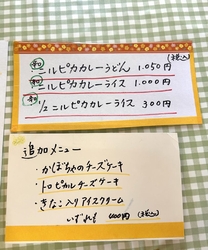 (税込)
和 ニルピカカレーうどん 1,050円
和 ニルピカカレーライス 1,000円
和 1/2ニルピカカレーライス 300円
追加メニュー
・かぼちゃのチーズケーキ
・トロピカルチーズケーキ
・きなこ入りアイスクリーム
いずれも 400円 (税込)